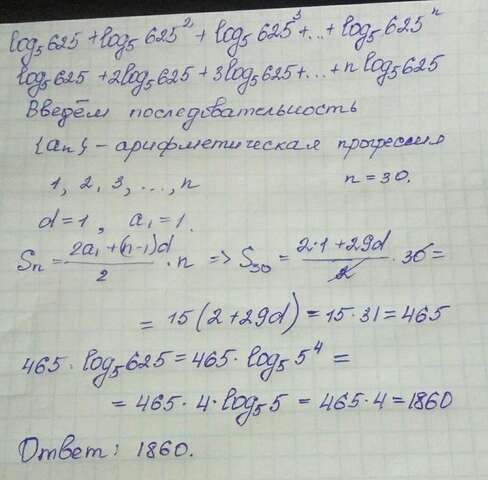 log₅625 + log₅625² + log₅625³ + ... + log₅625ⁿ
log₅625 + 2log₅625 + 3log₅625 + ... + n log₅625
Введём последовательность
{aₙ} - арифметическая прогрессия
1, 2, 3, ..., n n = 30.
d = 1, a₁ = 1.
Sₙ = (2a₁ + (n-1)d)/2 · n => S₃₀ = (2·1 + 29d)/2 · 30 =
= 15(2 + 29d) = 15·31 = 465
465 · log₅625 = 465 · log₅5⁴ =
= 465 · 4 · log₅5 = 465 · 4 = 1860
Ответ: 1860.